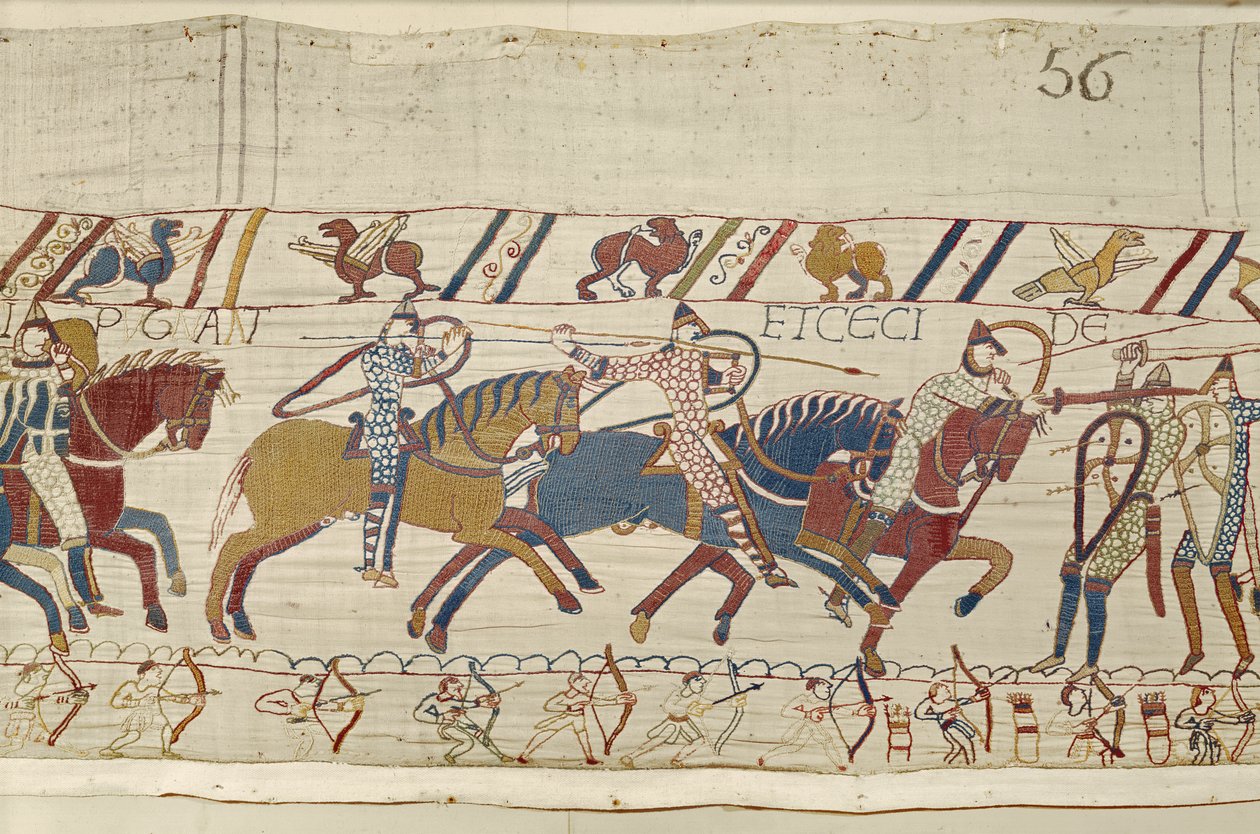 56
PVGNANT ETCECI DE